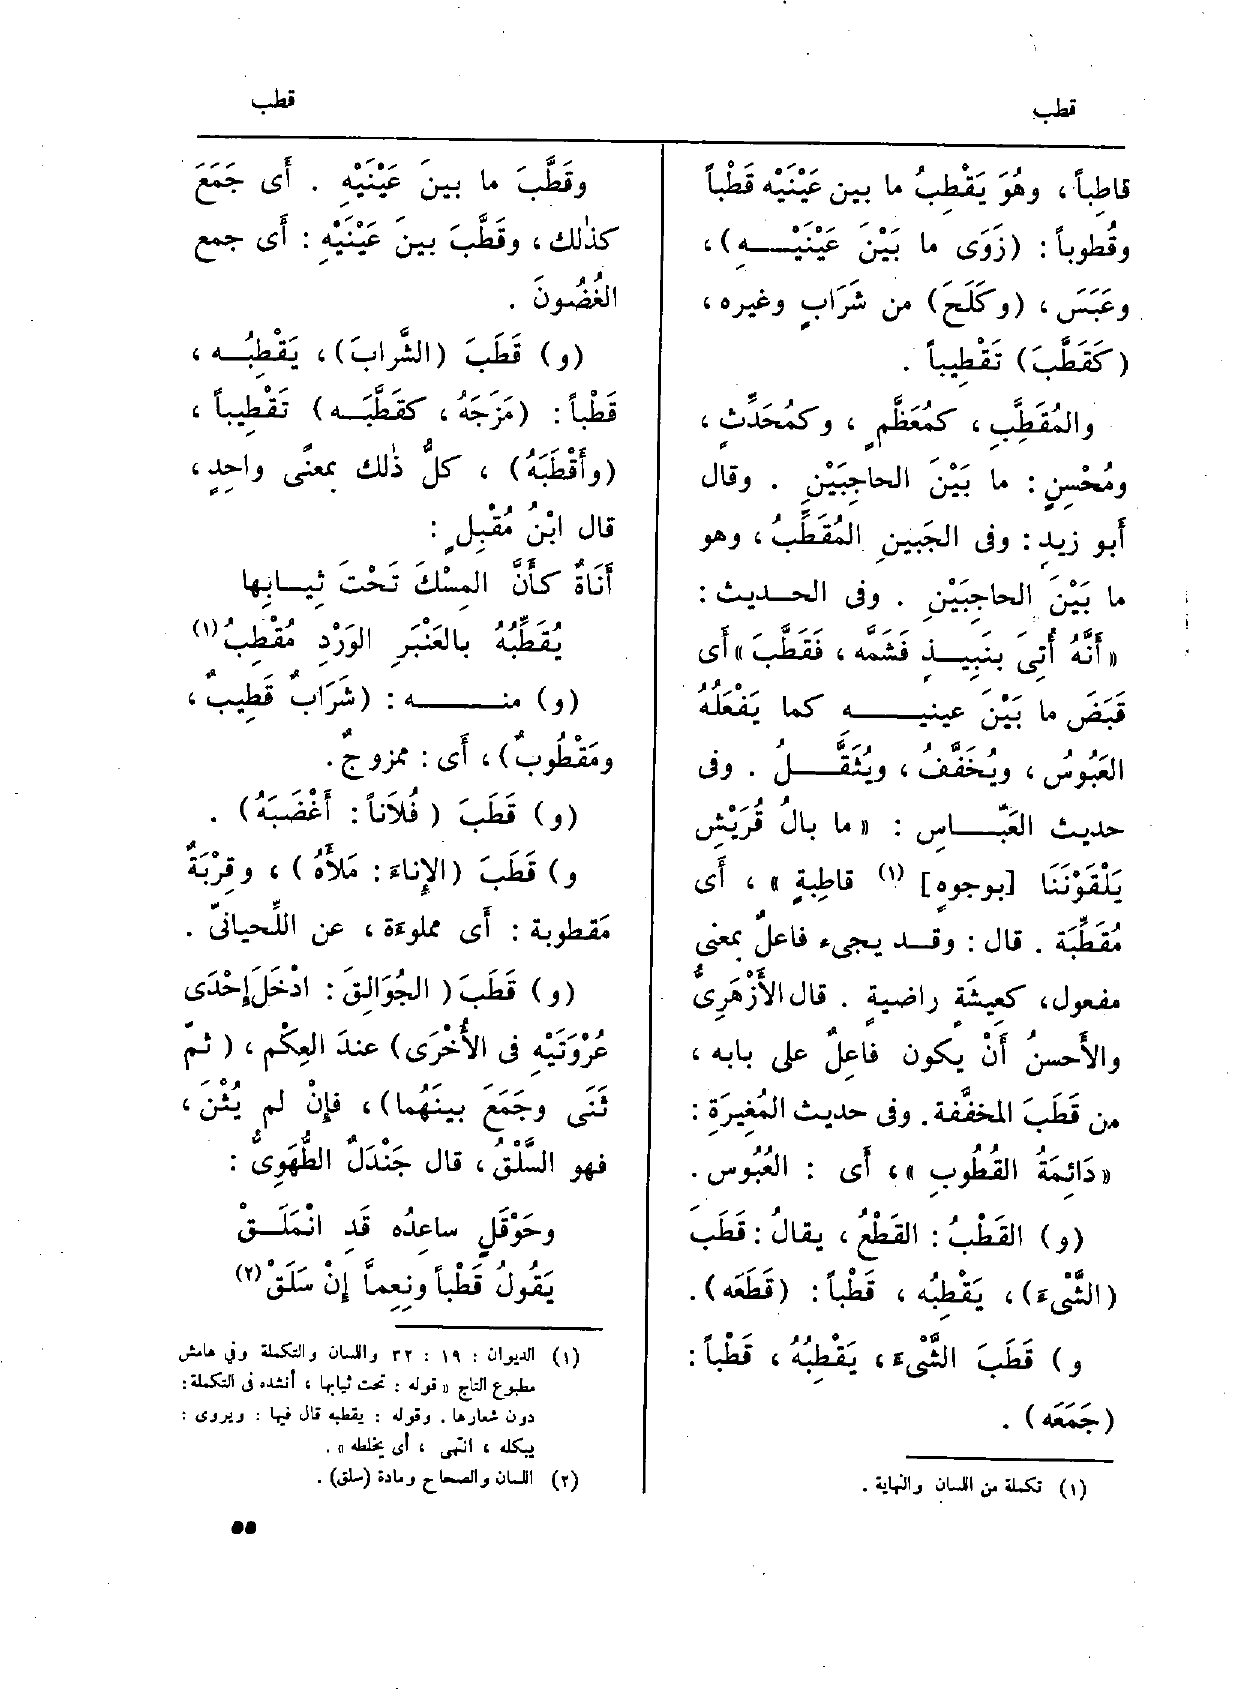 قطب
قطب
قاطِباً، وهُوَ يَقْطِبُ ما بين عَيْنَيْه قَطْباً
وقُطوباً: (زَوَى ما بَيْنَ عَيْنَيْـــه)،
وعَبَسَ، (وكَلَحَ) من شَرَابٍ وغيره،
(كَقَطَّبَ) تَقْطِيباً.
والمُقَطَّبِ، كمُعَظَّمٍ، وكمُحَدِّثٍ،
ومُحْسِنٍ: ما بَيْنَ الحاجِبَيْنِ. وقال
أبو زيدٍ: وفى الجَبينِ المُقَطَّبُ، وهو
ما بَيْنَ الحاجِبَيْنِ. وفى الحــديث:
«أَنَّهُ أُتِىَ بنَبِيــذٍ فَشَمَّه، فَقَطَّبَ» أى
قَبَضَ ما بَيْنَ عينيــــه كما يَفْعَلُهُ
العَبُوسُ، ويُخَفَّفُ، ويُثَقَّــلُ. وفى
حديث العَبّــاسِ: «ما بالُ قُرَيْشٍ
يَلْقَوْنَنَا [بوجوهٍ] (١) قاطِبةٍ»، أَى
مُقَطِّبَة. قال: وقــد يجىء فاعلٌ بمعنى
مفعول، كعِيشَةٍ راضيةٍ. قال الأَزْهَرِىُّ
والأَحسنُ أَنْ يكون فاعِلٌ على بابه،
من قَطَبَ المخفَّفة. وفى حديث المُغِيرَةِ:
«دَائِمَةُ القُطُوبِ»، أَى: العُبُوس.
(و) القَطْبُ: القَطْعُ، يقالُ: قَطَبَ
(الشَّىْءَ)، يَقْطِبُه، قَطْباً: (قَطَعَه).
و) قَطَبَ الشَّىْءَ، يَقْطِبُهُ، قَطْباً:
(جَمَعَه).
(١) تكملة من اللسان والنهاية.
وقَطَّبَ ما بينَ عَيْنَيْهِ. أَى جَمَعَ
كذٰلك، وقَطَّبَ بينَ عَيْنَيْهِ: أَى جمع
الغُضُونَ.
(و) قَطَبَ (الشَّرابَ)، يَقْطِبُــه،
قَطْباً: (مَزَجَهُ، كقَطَّبَــه) تَقْطِيباً،
(وأَقْطَبَهُ)، كلُّ ذٰلك بمعنًى واحِدٍ،
قال ابْنُ مُقْبِلٍ:
أَنَاةٌ كأَنَّ المِسْكَ تَحْتَ ثِيــابِها
يُقَطِّبُهُ بالعَنْبَرِ الوَرْدِ مُقْطِبُ(١)
(و) منــــه: (شَرَابٌ قَطِيبٌ،
ومَقْطوبٌ)، أَى: ممزوجٌ.
(و) قَطَبَ (فُلَاناً: أَغْضَبَهُ).
و) قَطَبَ (الإِناءَ: مَلَأَهُ)، وقِرْبَةٌ
مَقطوبة: أَى مملوءَة، عن اللِّحيانىّ.
(و) قَطَبَ (الجُوَالِقَ: ادْخَلَ إِحْدَى
عُرْوَتَيْهِ فى الأُخْرَى) عندَ العِكْمِ، (ثمّ
ثَنَى وجَمَعَ بينَهُما)، فإِنْ لم يُثْنَ،
فهو السَّلْقُ، قال جَنْدَلٌ الطُّهَوِىُّ:
وحَوْقَلٍ ساعِدُه قد انْمَلَــقْ
يَقُولُ قَطْباً ونِعِمَّا إِنْ سَلَقْ(٢)
(١) الديوان: ١٩: ٢٢ واللسان والتكملة وفي هامش
مطبوع التاج «قوله: تحت ثيابها، أنشده فى التكملة:
دون شعارها. وقوله: يقطبه قال فيها: ويروى:
يبكله، انتهى، أى يخلطه».
(٢) اللسان والصحاح ومادة (سلق).
٥٥